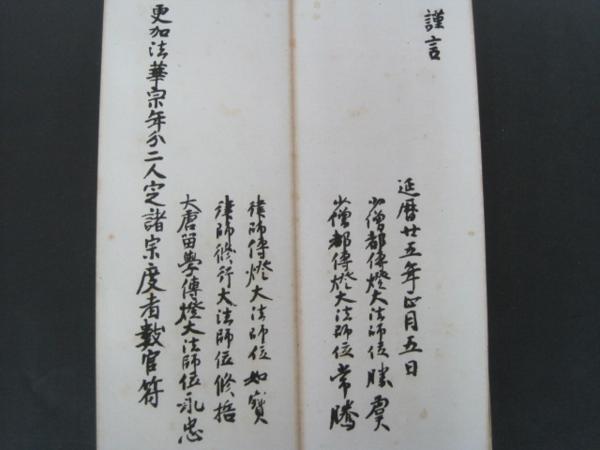 謹言
延暦廿五年正月五日
少僧都傳燈大法師位勝虞
少僧都傳燈大法師位常騰
律師傳燈大法師位如寶
律師修行大法師位修哲
大唐留學傳燈大法師位永忠
更加法華宗年分二人定諸宗度者數官符